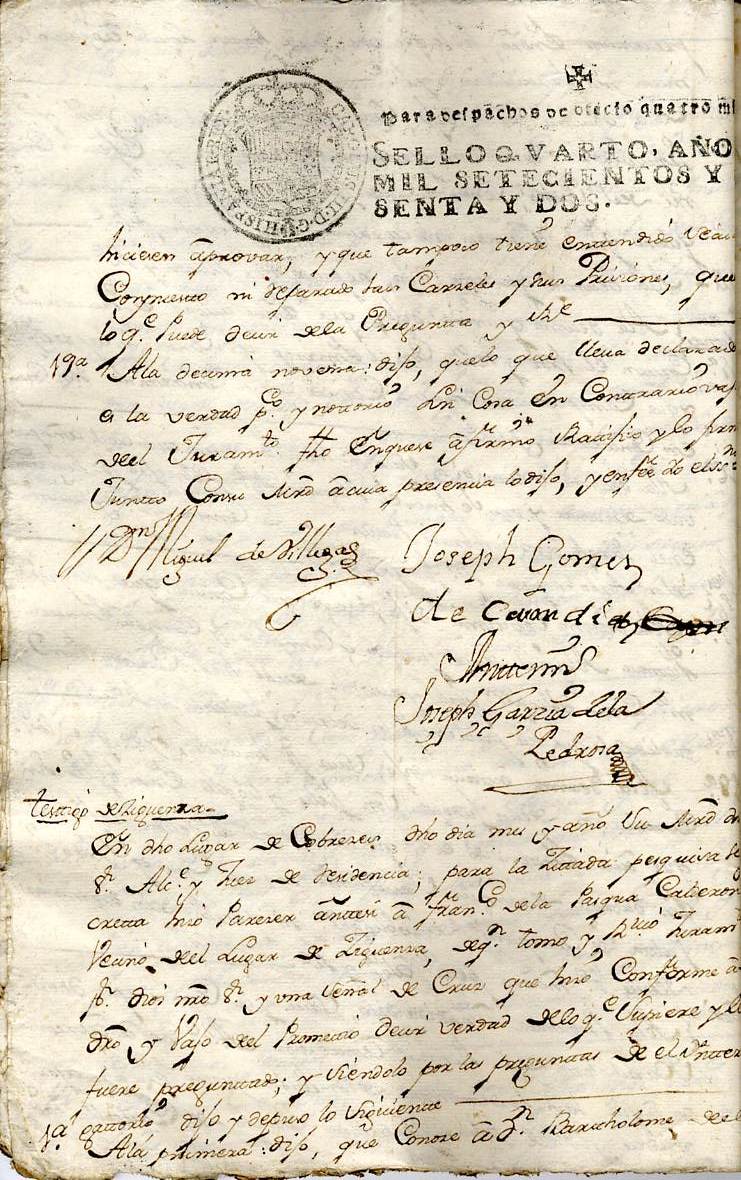 Para despachos de oficio quatro mr
SELLO QVARTO, AÑO
MIL SETECIENTOS Y
SENTA Y DOS.
CAROLUS III D. G. HISPANIAR. REX
hiciesen aprovar, y que tampoco tiene entendido
ni reparado las Carzeles y sus Prisiones, que
lo q.e Puede decir dela Pregunta y
19ª Ala decima novena: dijo, quelo que lleva declarado
es la verdad p.co y nottorio sin Cosa en Contrario vajo
del Juram.to fho enquese afirmo Ratifico y lo firm
Juntto Consu Mrd acuia presencia lodijo, y enfee de ello
Dn Miguel de Villegas
Joseph Gomez
de
Antemi
Joseph Garzia dela
Pedrosa
testigo de Ziguenza
En dho Lugar de Cobreces dho dia mes y año Su Mrd dho
S.r Alc.e y Juez de Residencia, para la Zittada pesquisa Se
cretta hizo Parezer antesi a Fran.co de la Pasqua Calderon
Vecino del Lugar de Ziguenza, deq.n tomo y Juram.to
p.r dios nro S.r y una señal de Cruz que hizo Conforme a
dro y Vajo del Prometio decir verdad delo q.e Supiere y le
fuere preguntado; y siendolo por las preguntas de el Ynter
gattorio dijo y depuso lo siguiente
1ª Ala primera: dijo, que Conoze a D.n Bartholome de